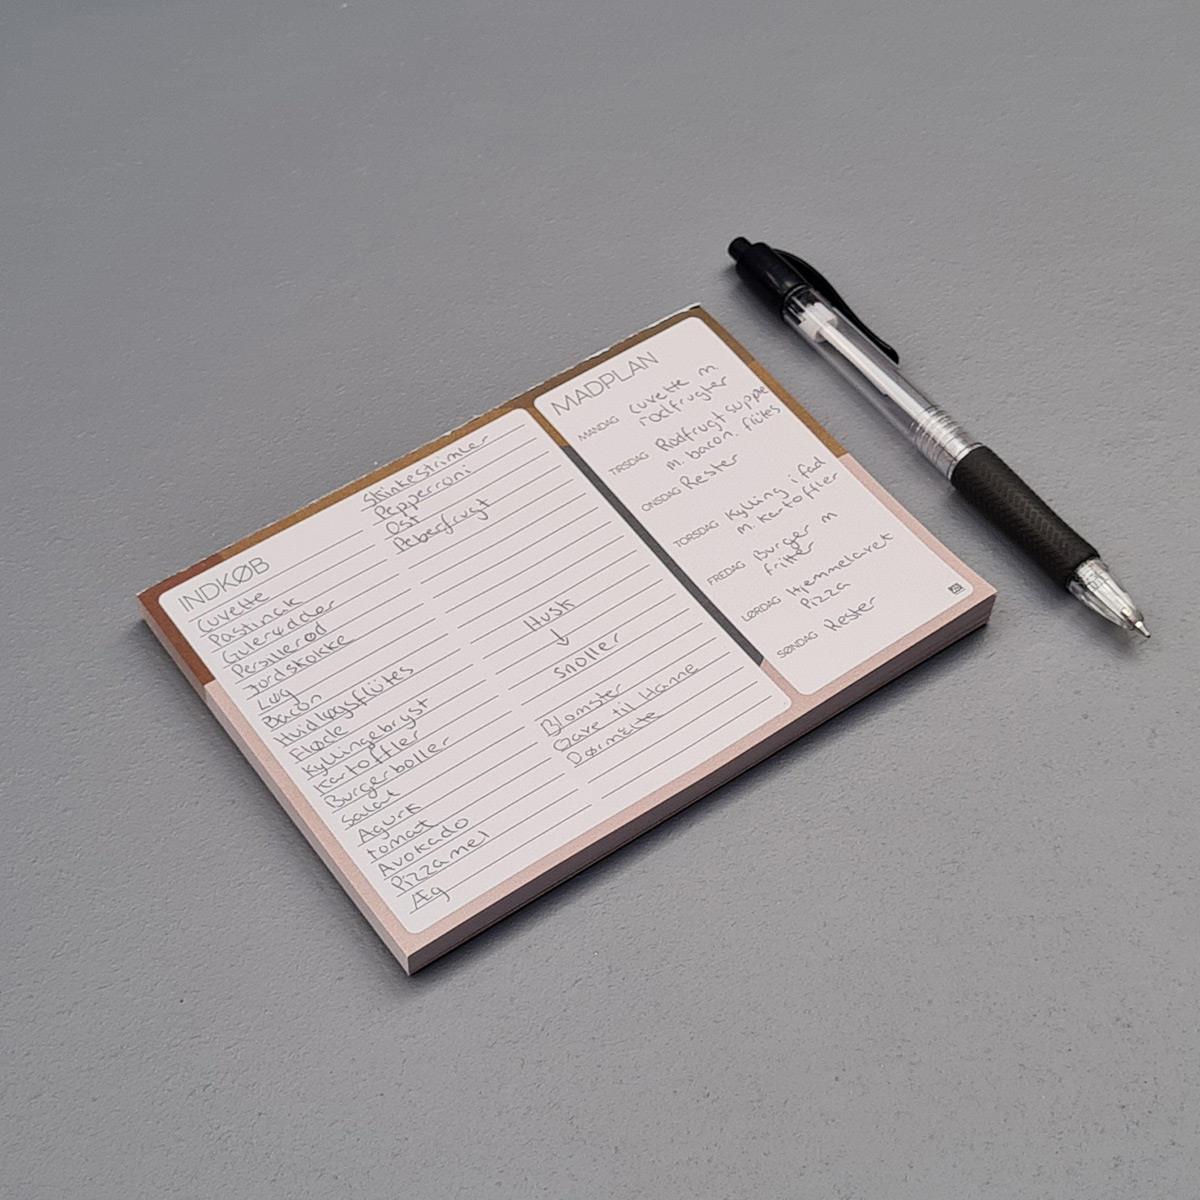 INDKØB
Cuvette
Pastinak
Gulerødder
Persillerod
Jordskokke
Løg
Bacon
Hvidløgsflütes
Fløde
Kyllingebryst
Kartoffler
Burgerboller
Salat
Agurk
Tomat
Avokado
Pizzamel
Æg
Skinkestrimler
Pepperroni
Ost
Peberfrugt
Husk
↓
Snoller
Blomster
Gave til Hanne
Dørmåtte
MADPLAN
MANDAG Cuvette m
rodfrugter
TIRSDAG Rodfrugt suppe
m. bacon. flütes
ONSDAG Rester
TORSDAG Kylling i fad
m. Kartoffler
FREDAG Burger m
fritter
LØRDAG Hjemmelavet
Pizza
SØNDAG Rester